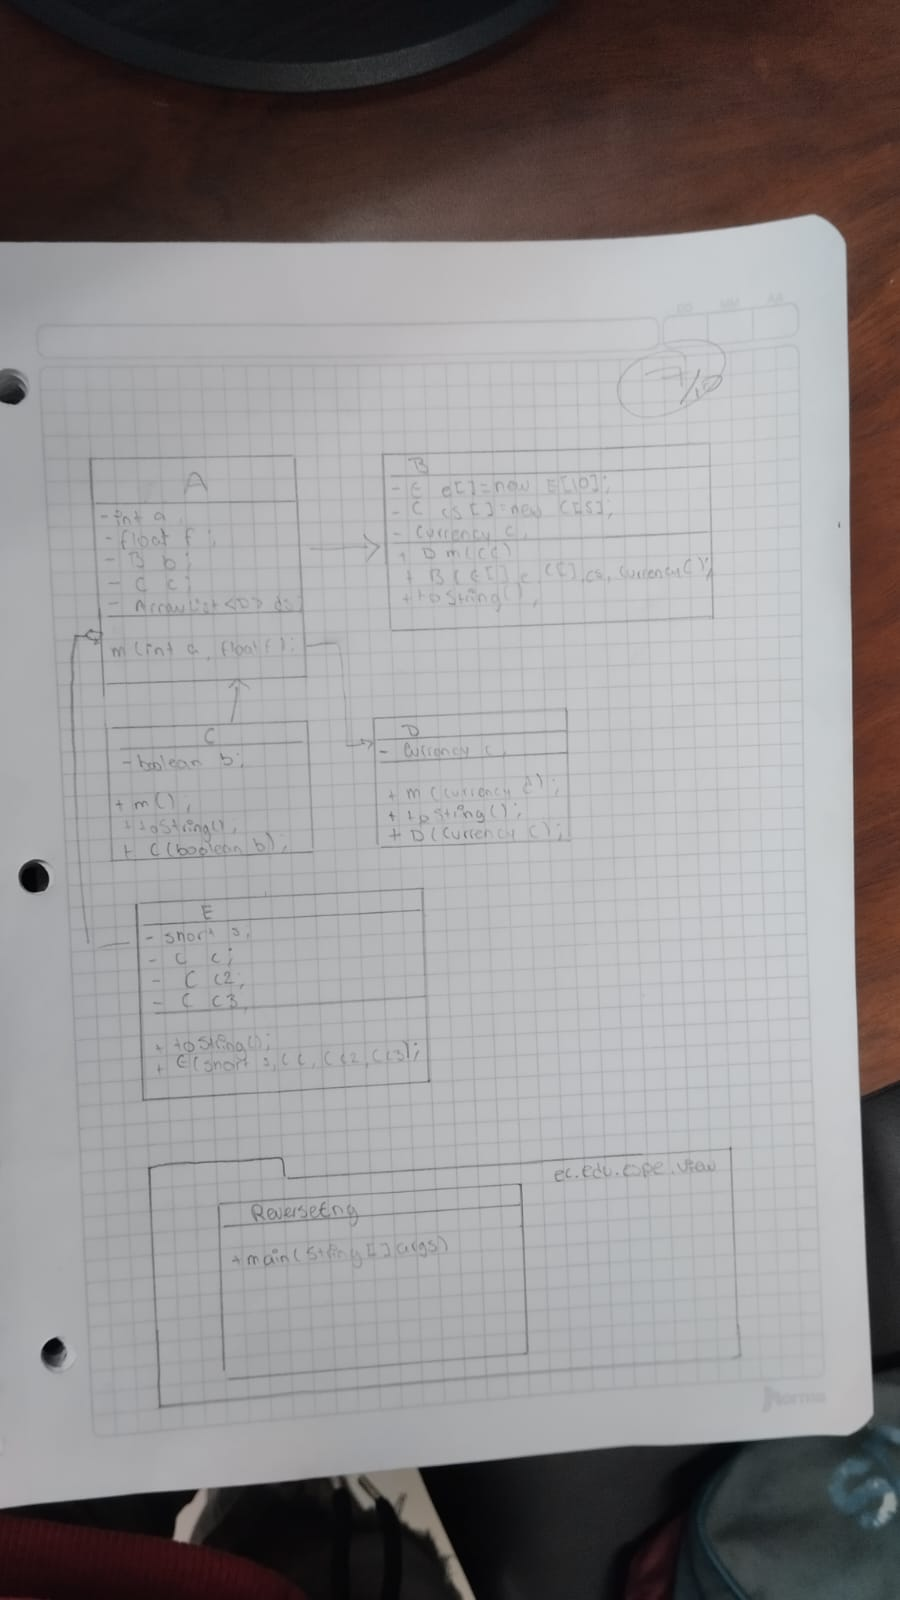 DD MM AA
7/10
A
- int a
- float f;
- B b;
- C c;
- ArrayList <D> d;
m (int a, float f);
B
- E e[] = new E[10];
- C cs[] = new C[5];
- Currency c;
+ D m(C c)
+ B ( E[] e, C[], cs, Currency c);
+ toString();
C
- boolean b;
+ m();
+ toString();
+ C (boolean b);
D
- Currency c;
+ m (Currency c);
+ toString();
+ D (Currency c);
E
- short s;
- C c;
- C c2;
- C c3
+ toString();
+ E (short s, C c, C c2, C c3);
ec.edu.espe.view
ReverseEng
+ main( String [] args)
norma